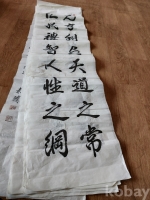 元亨利貞天道之常
仁義禮智人性之綱
kobay